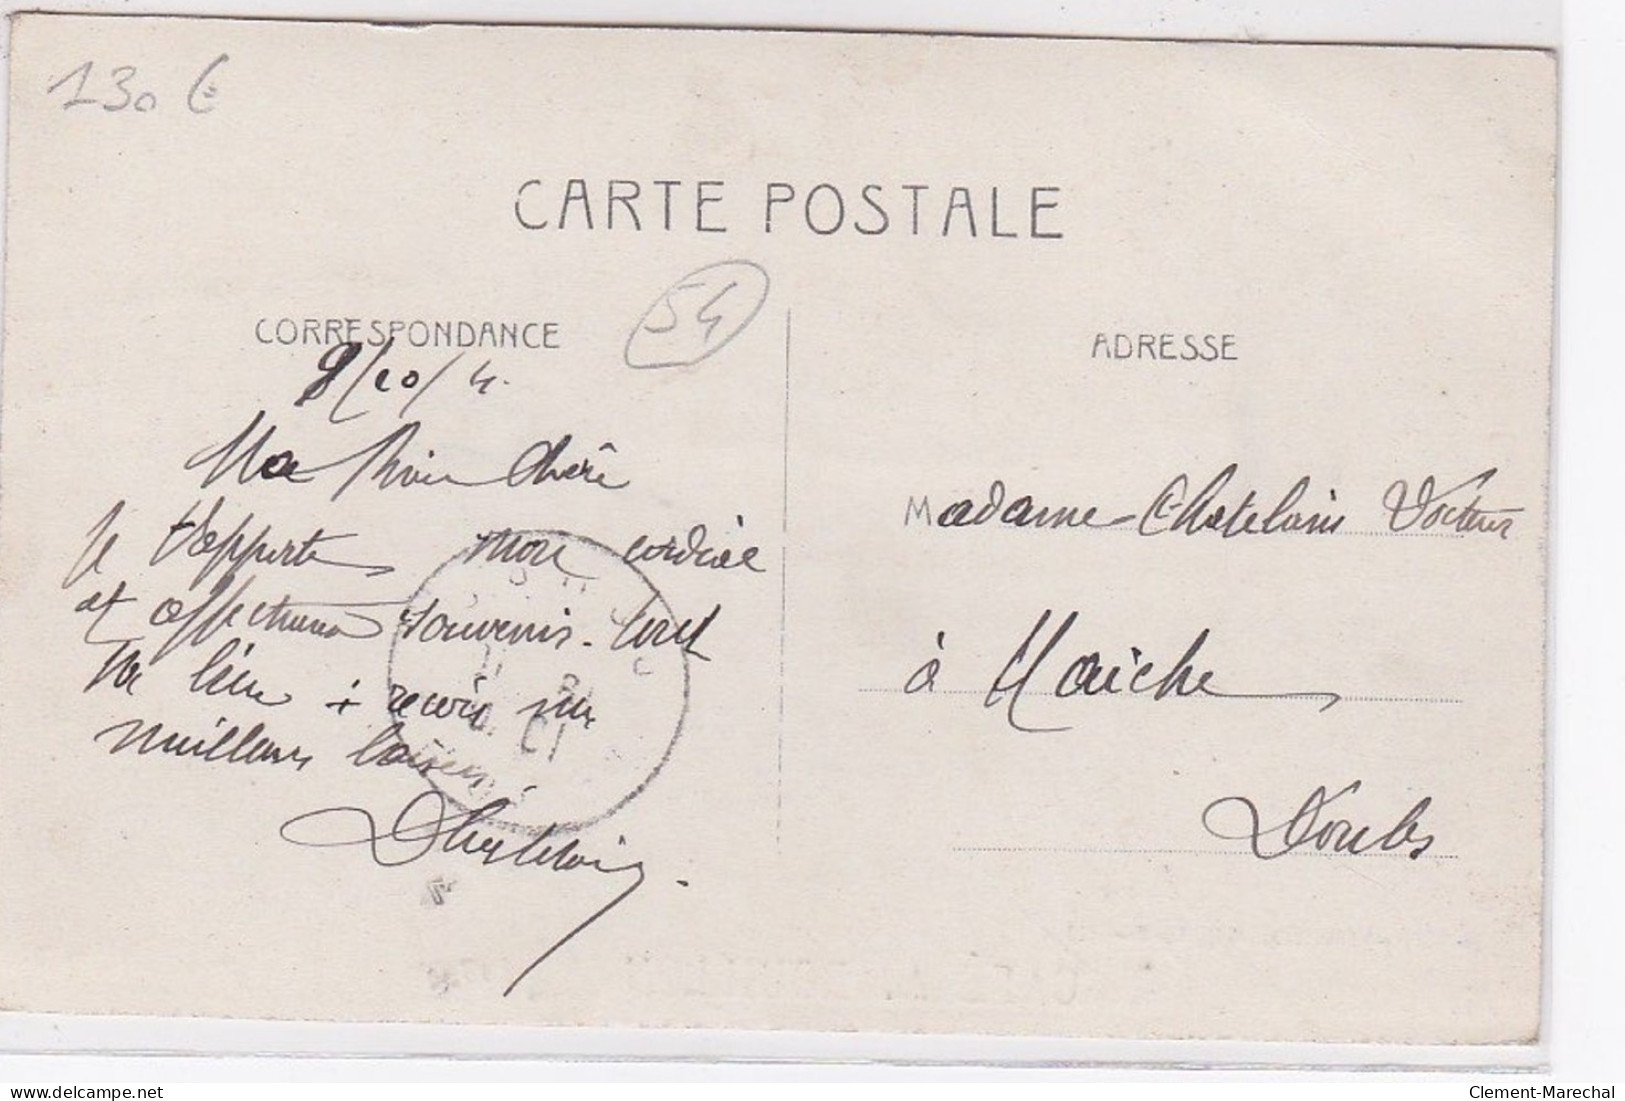 130 €
CARTE POSTALE
54
CORRESPONDANCE
ADRESSE
8/10/4.
Ma bien Chère
Je t'apporte mon cordial
et affectueux souvenir. tout
va bien + reçois mes
meilleurs baisers
Chatelain
Madame Chatelain Victor
à Maiche
Doubs
Clement-Marechal